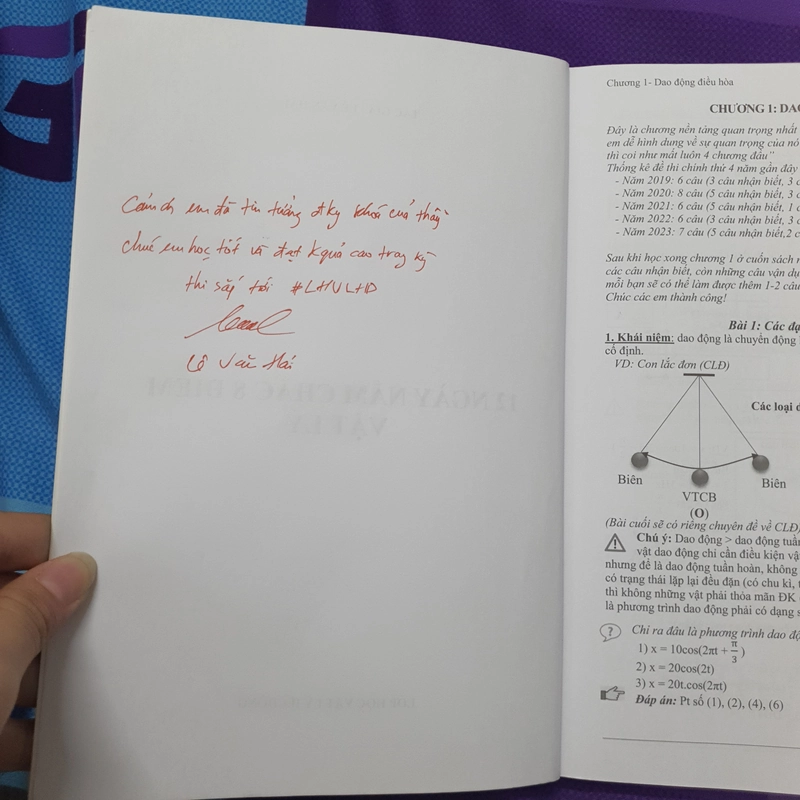 Cảm ơn em đã tin tưởng đky khoá của thầy
chúc em học tốt và đạt kquả cao trong kỳ
thi sắp tới #LHVLHD
Lê Văn Hải
12 NGÀY NẮM CHẮC 8 ĐIỂM
VẬT LÝ
Chương 1- Dao động điều hòa
CHƯƠNG 1: DAO
Đây là chương nền tảng quan trọng nhất
em dễ hình dung về sự quan trọng của nó
thì coi như mất luôn 4 chương đầu"
Thống kê đề thi chính thứ 4 năm gần đây
- Năm 2019: 6 câu (3 câu nhận biết, 3 c
- Năm 2020: 8 câu (5 câu nhận biết, 3
- Năm 2021: 6 câu (5 câu nhận biết, 1 c
- Năm 2022: 6 câu (3 câu nhận biết, 3
- Năm 2023: 7 câu (5 câu nhận biết,2 c
Sau khi học xong chương 1 ở cuốn sách
các câu nhận biết, còn những câu vận dụ
mỗi bạn sẽ có thể làm được thêm 1-2 câu
Chúc các em thành công!
Bài 1: Các đạ
1. Khái niệm: dao động là chuyển động
cố định.
VD: Con lắc đơn (CLĐ)
Các loại d
Biên
VTCB
Biên
(O)
(Bài cuối sẽ có riêng chuyên đề về CLĐ)
Chú ý: Dao động > dao động tuần
vật dao động chỉ cần điều kiện vật
nhưng để là dao động tuần hoàn, không
có trạng thái lặp lại đều đặn (có chu kì, t
thì không những vật phải thỏa mãn ĐK
là phương trình dao động phải có dạng s
Chỉ ra đâu là phương trình dao độ
1) x = 10cos(2πt + π/3)
2) x = 20cos(2t)
3) x = 20t.cos(2πt)
Đáp án: Pt số (1), (2), (4), (6)